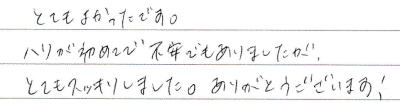 とてもよかったです。
ハリが初めてで不安でもありましたが、
とてもスッキリしました。ありがとうございます！